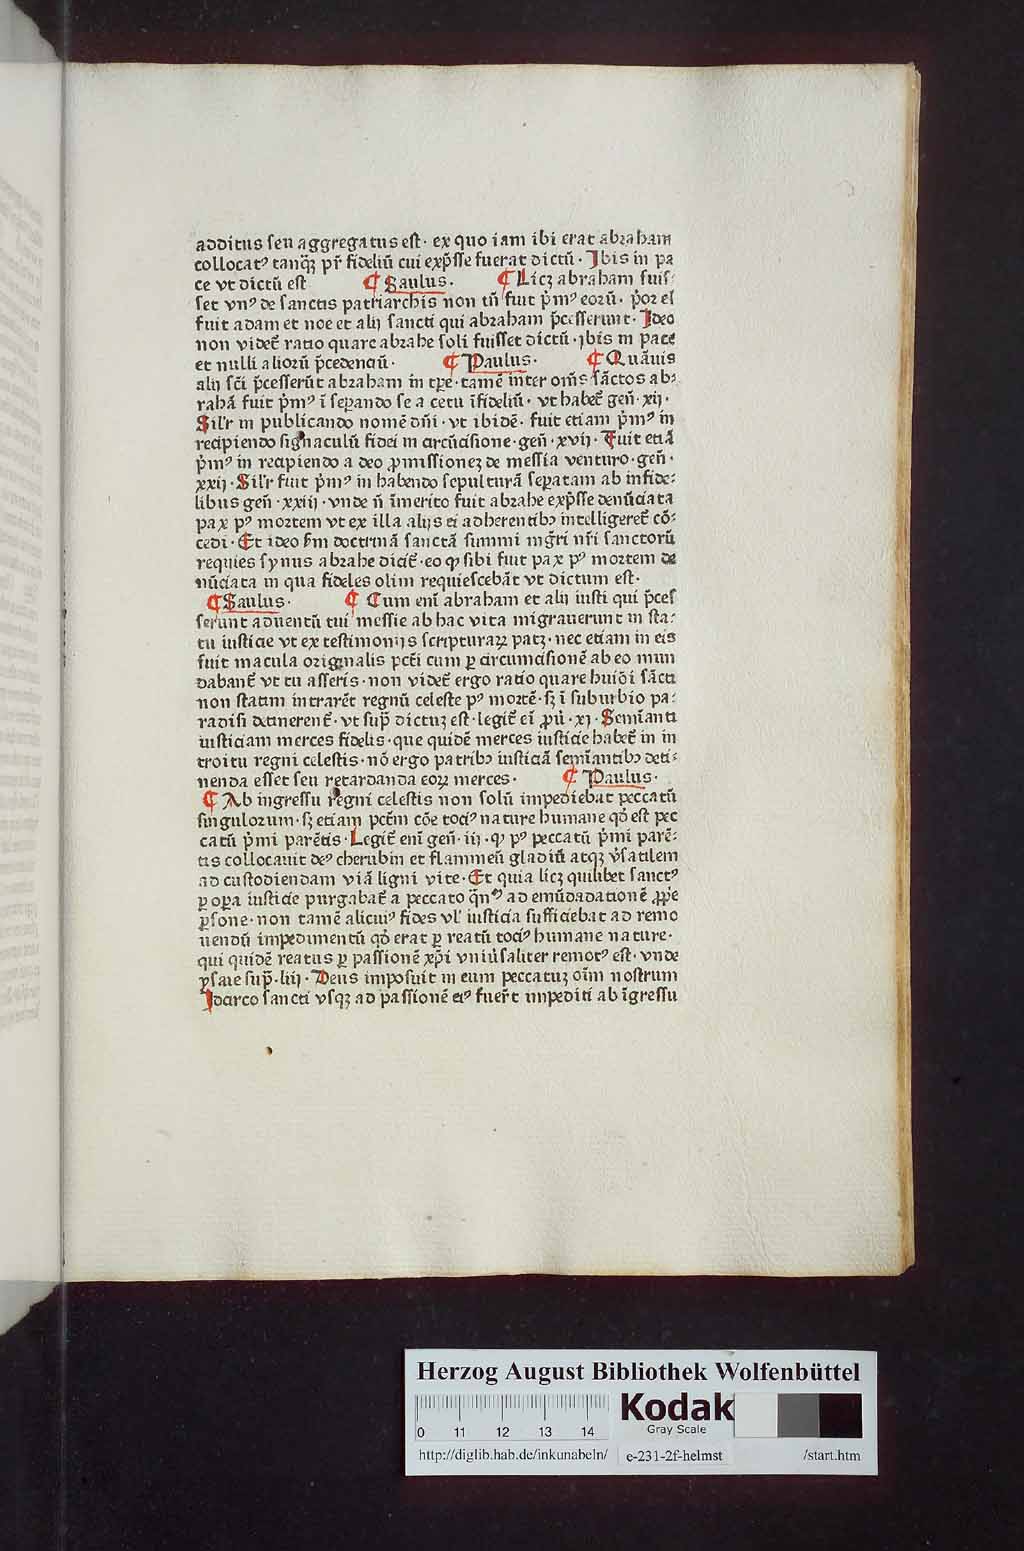 additus seu aggregatus est· ex quo iam ibi erat abraham
collocatꝰ tanq̃ꝫ pr̃ fideliũ cui exp̃sse fuerat dictũ · Ibis in pa
ce vt dictũ est ¶ Saulus · ¶ Licꝫ abraham fuis⸗
set vnꝰ de sanctis patriarchis non tñ fuit p̃mꝰ eoꝝ̃· p̃or eĩ
fuit adam et noe et alij sancti qui abraham p̃cesserunt · Ideo
non videt̃ ratio quare abrahe soli fuisset dictũ · ibis in pace
et nulli aliorũ p̃cedenciũ · ¶ Paulus · ¶ Quãuis
alij sc̃i p̃cesserũt abraham in tꝑe · tamẽ inter om̃s sãctos ab⸗
rahã fuit p̃mꝰ ĩ seꝑando se a cetu ĩfideliũ · vt habet̃ geñ · xij ·
Sil'r in publicando nomẽ dñi · vt ibidẽ · fuit etiam p̃mꝰ in
recipiendo signaculũ fidei in circũcisione · geñ · xvij · Fuit etiã
p̃mꝰ in recipiendo a deo ꝓmissioneꝫ de messia venturo · geñ ·
xxij · Sil'r fuit p̃mꝰ in habendo sepulturã seꝑatam ab infide⸗
libus geñ · xxiij · vnde ñ ĩmerito fuit abrahe exp̃sse denũciata
pax pꝰ mortem vt ex illa alijs ei adherentibꝫ intelligeret̃ cõ⸗
cedi · Et ideo ẜm doctrinã sanctã summi mg̃ri nr̃i sanctorũ
requies synus abrahe dicit̃ · eo ꝙ sibi fuit pax pꝰ mortem de
nũciata in qua fideles olim requiescebãt vt dictum est ·
¶ Saulus · ¶ Cum enĩ abraham et alij iusti qui p̃ces
serunt aduentũ tui messie ab hac vita migrauerunt in sta⸗
tu iusticie vt ex testimonijs scripturaꝝ patꝫ · nec etiam in eis
fuit macula originalis pct̃i cum ꝑ circumcisionẽ ab eo mun
dabant̃ vt tu asseris · non videt̃ ergo ratio quare huiõi sãcti
non statim intrarẽt regnũ celeste pꝰ mortẽ · sꝫ ĩ suburbio pa⸗
radisi detinerent̃ · vt sup̃ dictuꝫ est · legit̃ eĩ ꝓũ · xj · Semĩanti
iusticiam merces fidelis · que quidẽ merces iusticie habet̃ in in
troitu regni celestis · nõ ergo patribꝫ iusticiã semĩantibꝫ deti⸗
nenda esset seu retardanda eoꝝ merces · ¶ Paulus ·
¶ Ab ingressu regni celestis non solũ impediebat peccatũ
singulorum · sꝫ etiam pctm̃ cõe tociꝰ nature humane qđ est pec
catũ p̃mi parẽtis · Legit̃ enĩ geñ · iij · ꝙ pꝰ peccatũ p̃mi parẽ⸗
tis collocauit deꝰ cherubin et flammeũ gladiũ atqꝫ ṽsatilem
ad custodiendam viã ligni vite · Et quia licꝫ quilibet sanctꝰ
ꝑ oꝑa iusticie purgabat̃ a peccato q̃nꝰ ad emũdadationẽ ꝓp̃e
ꝑsone · non tamẽ alicuiꝰ fides vl' iusticia sufficiebat ad remo
uendũ impedimentũ qđ erat ꝑ reatũ tociꝰ humane nature ·
qui quidẽ reatus ꝑ passionẽ xp̃i vniũsaliter remotꝰ est · vnde
ysaie sup̃ · liij · Deus imposuit in eum peccatuꝫ oĩm nostrum
Idcirco sancti vsqꝫ ad passionẽ eiꝰ fuer̃t impediti ab ĩgressu
Herzog August Bibliothek Wolfenbüttel
0 11 12 13 14
Kodak
Gray Scale
http://diglib.hab.de/inkunabeln/ e-231-2f-helmst /start.htm